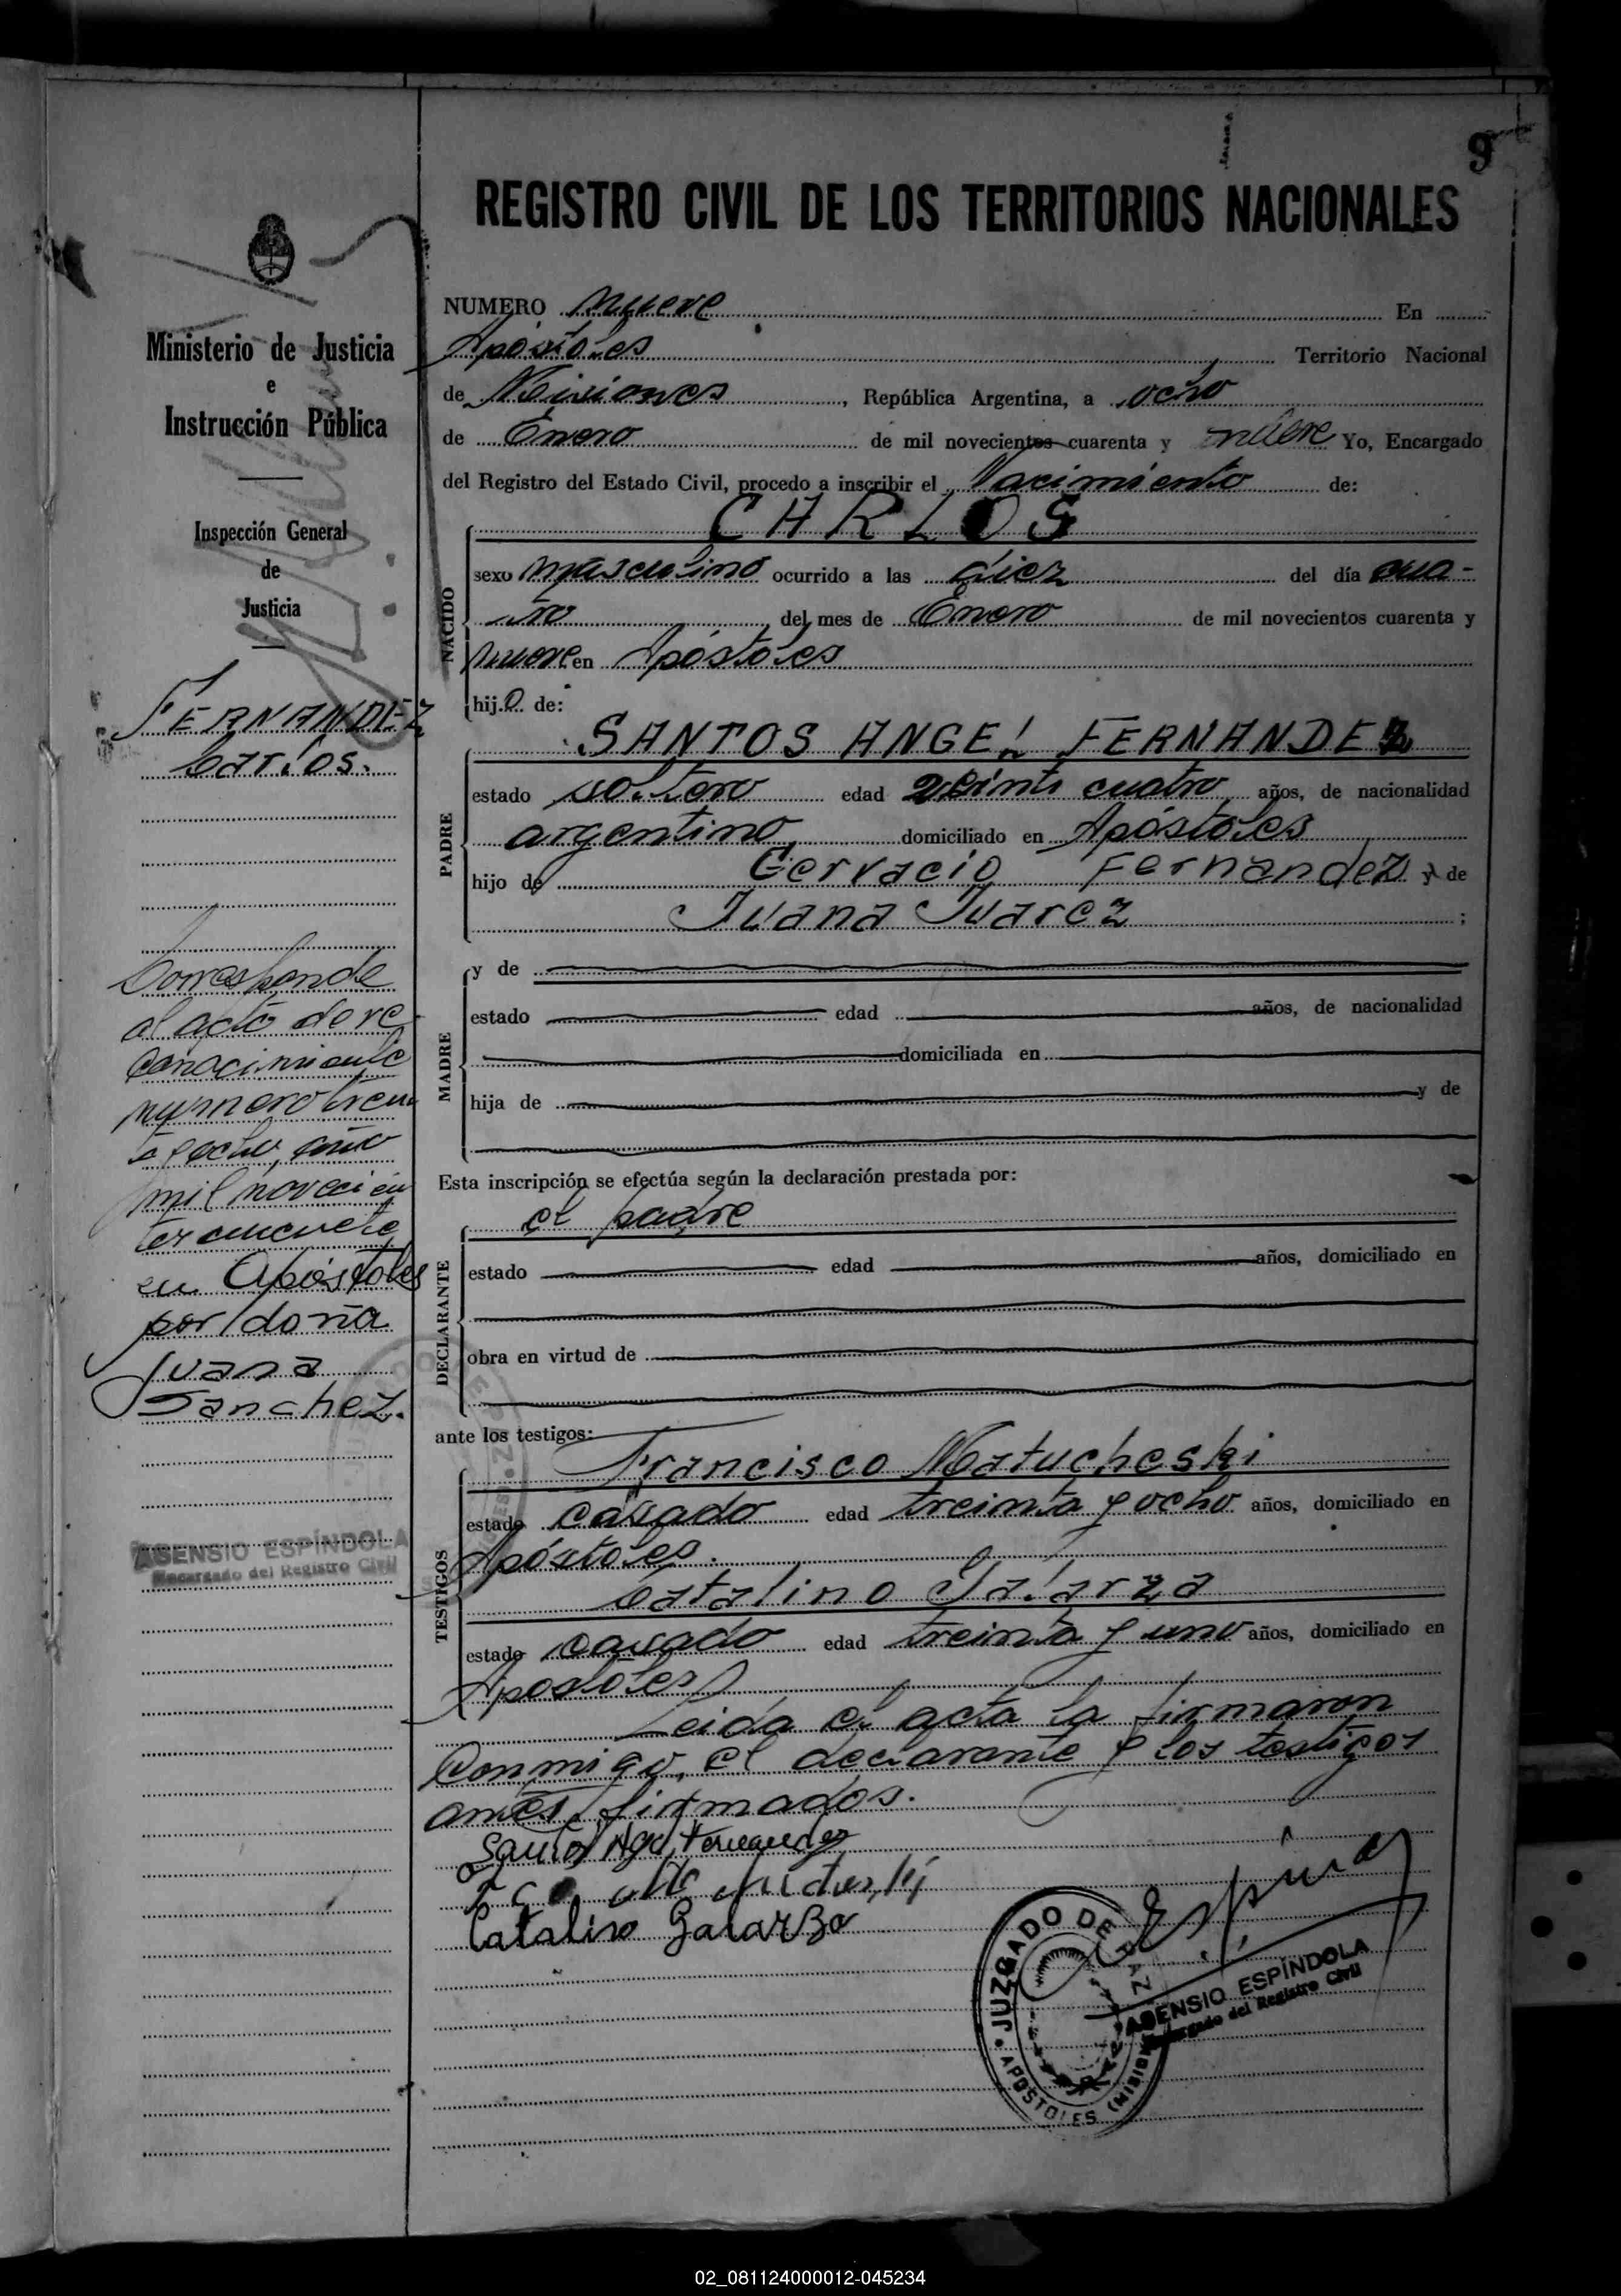 9
REGISTRO CIVIL DE LOS TERRITORIOS NACIONALES
Ministerio de Justicia
e
Instrucción Pública
Inspección General
de
Justicia
FERNANDEZ
Carlos.
Corresponde
al acto de re
conocimiento
numero trein
ta y ocho, año
mil novecien
tos cincuenta
en Apóstoles
por doña
Juana
Sanchez.
ASENSIO ESPÍNDOLA
Encargado del Registro Civil
NUMERO nueve En
Apóstoles Territorio Nacional
de Misiones, República Argentina, a ocho
de Enero de mil novecientos cuarenta y nueve Yo, Encargado
del Registro del Estado Civil, procedo a inscribir el Nacimiento de:
NACIDO
CARLOS
sexo masculino ocurrido a las diez del día cua-
tro del mes de Enero de mil novecientos cuarenta y
nueve en Apóstoles
hijo de:
PADRE
SANTOS ANGEL FERNANDEZ
estado soltero edad veinte cuatro años, de nacionalidad
argentino domiciliado en Apóstoles
hijo de Gervacio Fernandez y de
Juana Juarez ;
MADRE
y de
estado edad años, de nacionalidad
domiciliada en
hija de y de
Esta inscripción se efectúa según la declaración prestada por:
el padre
DECLARANTE
estado edad años, domiciliado en
obra en virtud de
ante los testigos:
TESTIGOS
Francisco Matucheski
estado casado edad treinta y ocho años, domiciliado en
Apóstoles.
Catalino Galarza
estado casado edad treinta y uno años, domiciliado en
Apostoles
Leida el acta la firmaron
conmigo, el declarante y los testigos
antes firmados.
Santos Fernandez
Catalino Galarza
JUZGADO DE PAZ
APOSTOLES (MISIONES)
ASENSIO ESPÍNDOLA
Encargado del Registro Civil
02_081124000012-045234